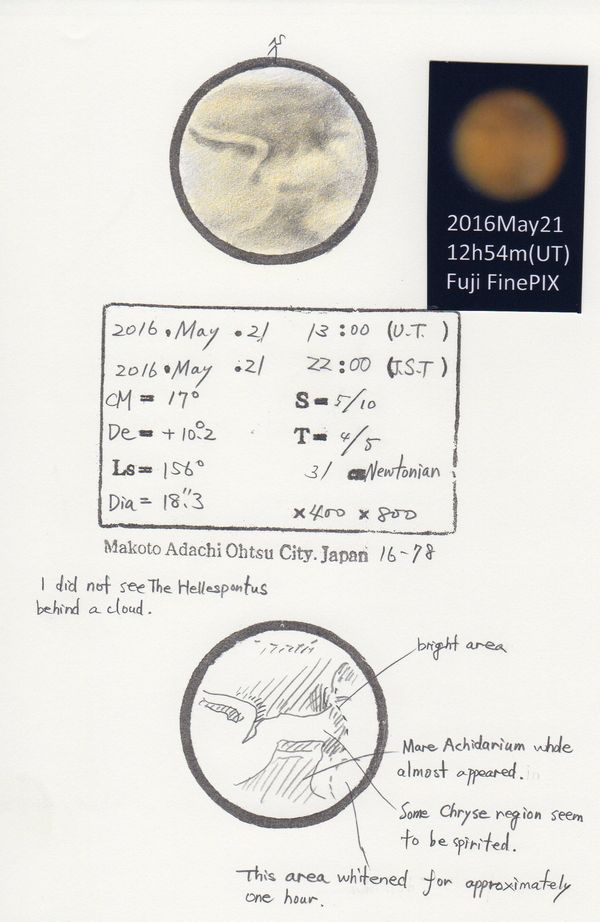 2016May21
12h54m(UT)
Fuji FinePIX
2016.May.21 13:00 (U.T.)
2016.May.21 22:00 (J.S.T)
CM= 17° S=5/10
De= +10°.2 T=4/5
Ls=156° 31 Newtonian
Dia= 18".3 ×400 ×800
Makoto Adachi Ohtsu City. Japan 16-78
I did not see The Hellespontus
behind a cloud.
bright area
Mare Achidarium whole
almost appeared.
Some Chryse region seem
to be spirited.
This area whitened for approximately
one hour.